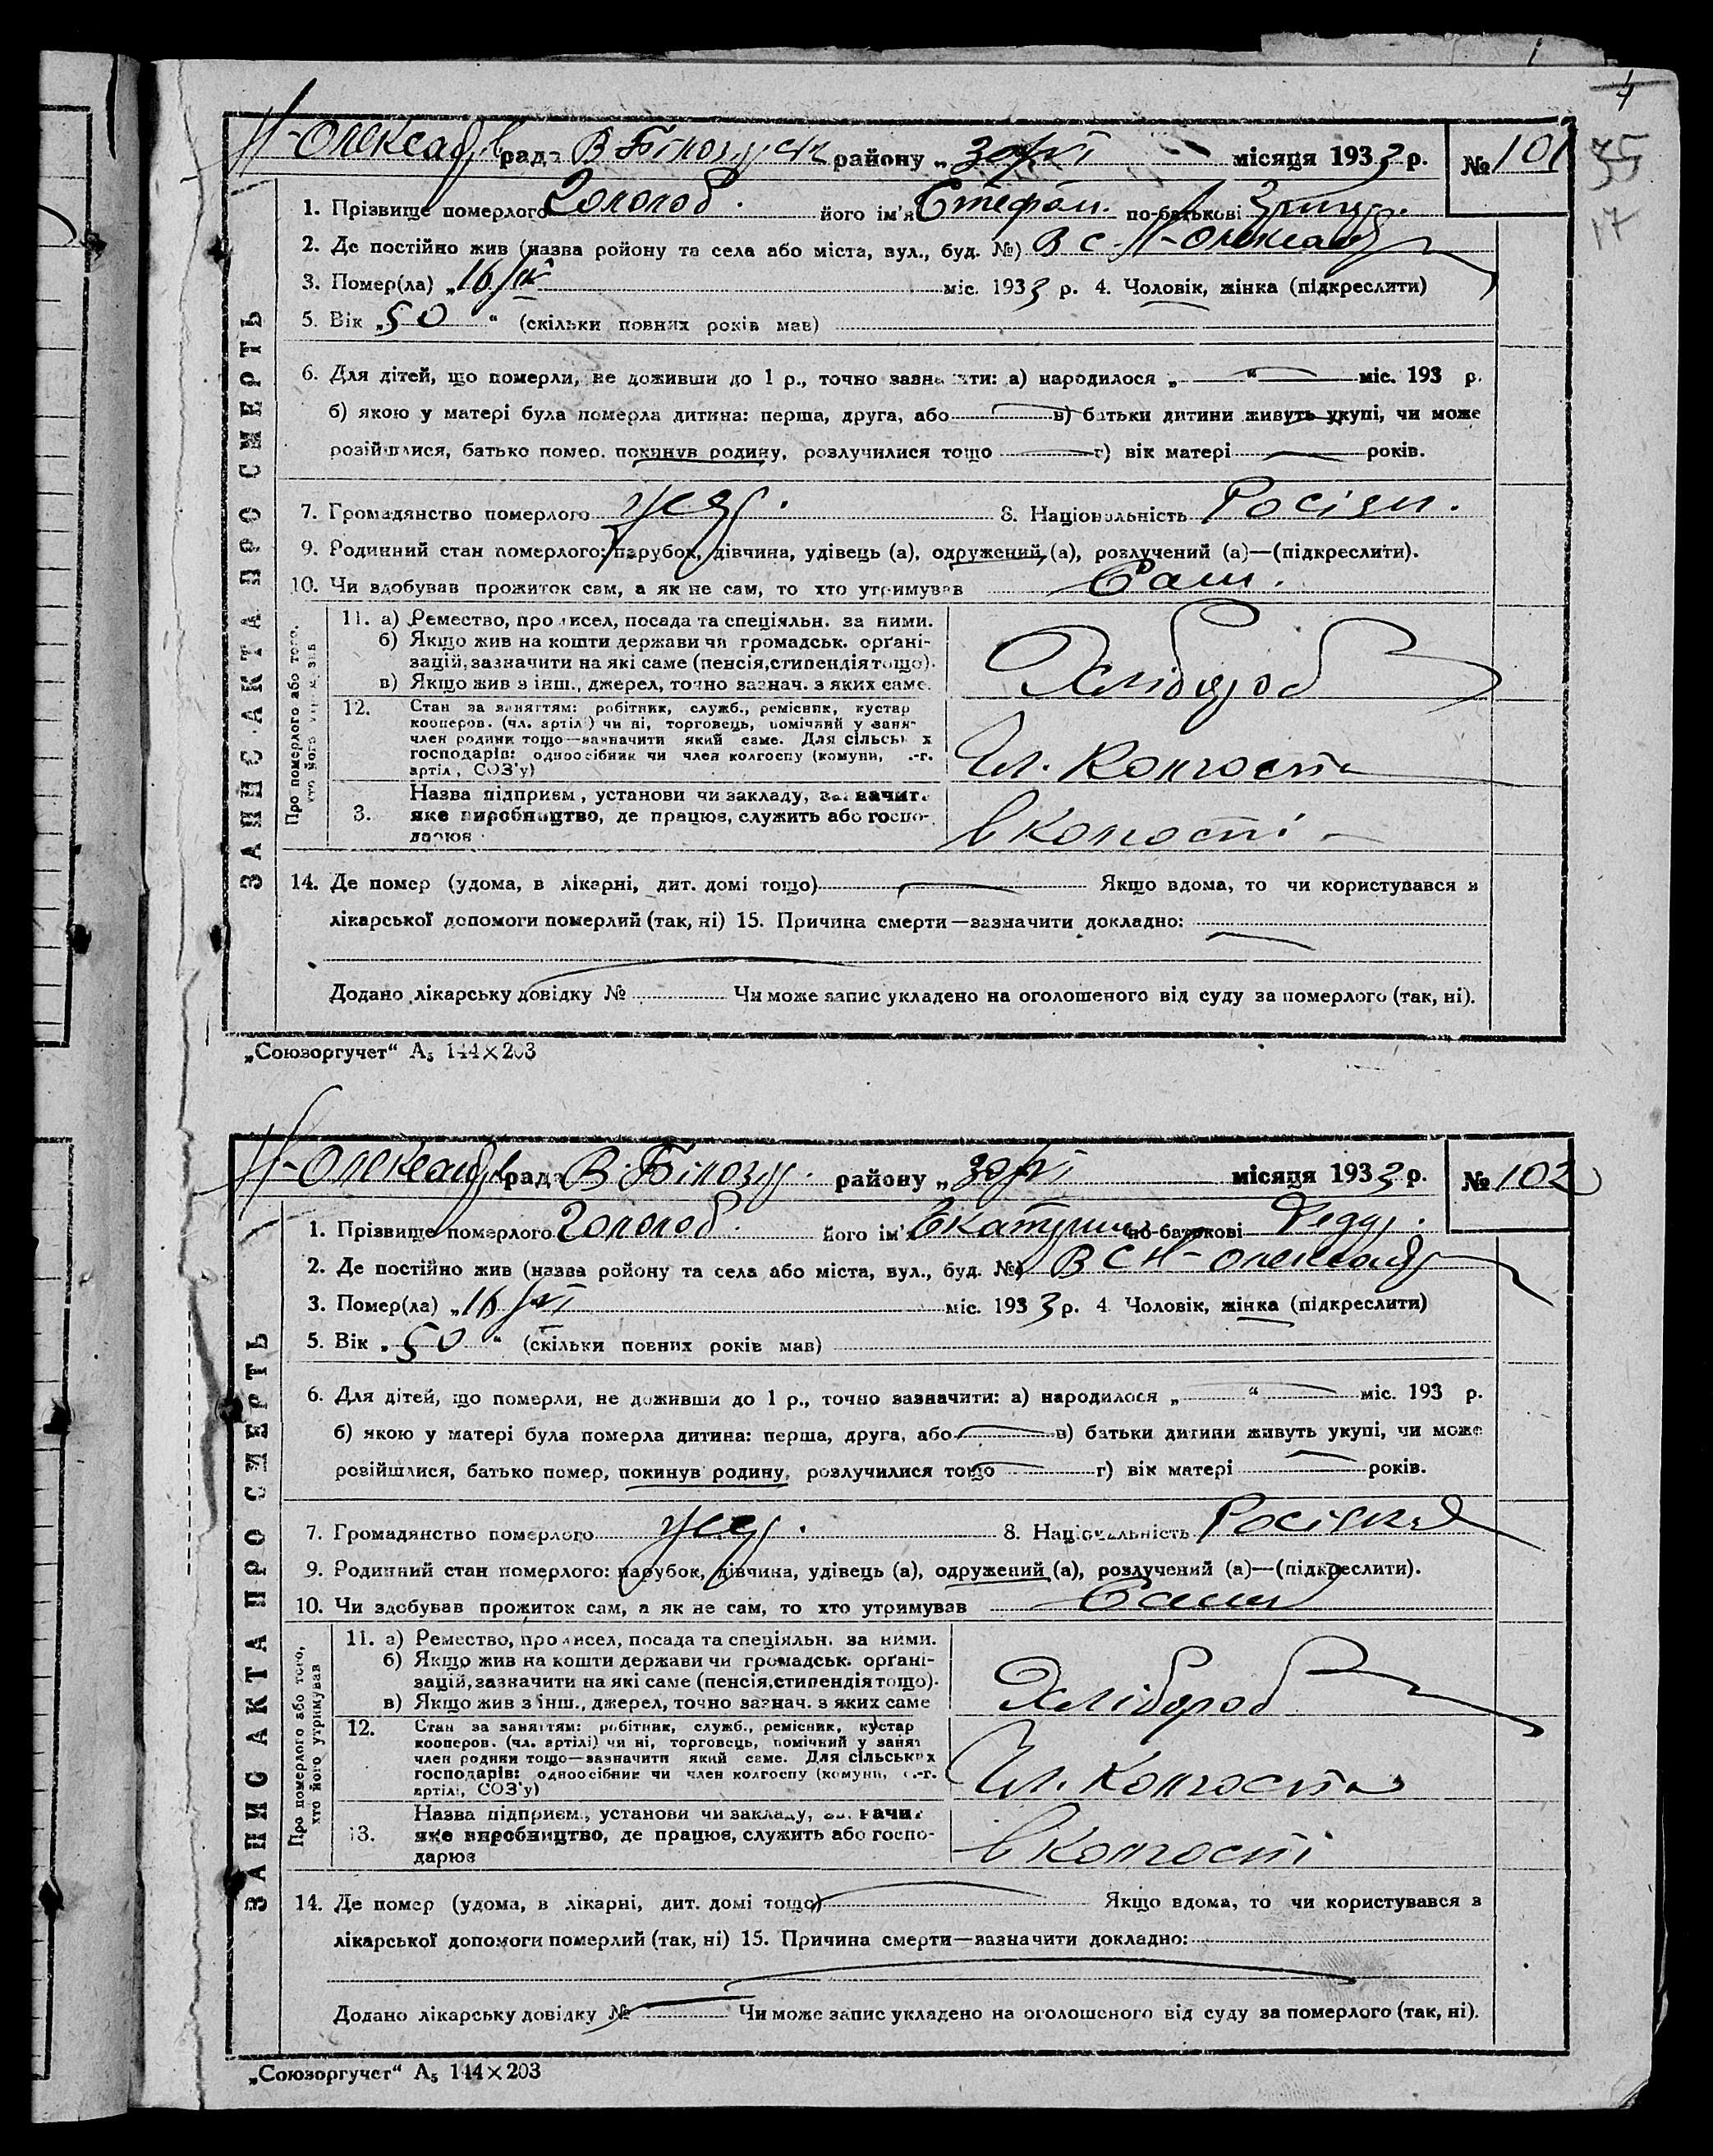 4
35
17
Н-Олександрів рада В Білозуськ району „ 30/VI місяця 1933 р. № 101
ЗАПИС АКТА ПРО СМЕРТЬ
1. Прізвище померлого Гололоб. його ім'я Стефан. по-батькові
2. Де постійно жив (назва ройону та села або міста, вул., буд. №) В с. Н-Олександр
3. Помер(ла) „16/ міс. 1933 р. 4. Чоловік, жінка (підкреслити)
5. Вік „50“ (скільки повних років мав)
6. Для дітей, що померли, не доживши до 1 р., точно зазначити: а) народилося „ “ міс. 193 р.
б) якою у матері була померла дитина: перша, друга, або в) батьки дитини живуть укупі, чи може
розійшлися, батько помер, покинув родину, розлучилися тощо г) вік матері років.
7. Громадянство померлого 8. Національність Росіян.
9. Родинний стан померлого: парубок, дівчина, удівець (а), одружений (а), розлучений (а)—(підкреслити).
10. Чи здобував прожиток сам, а як не сам, то хто утримував Сам.
Про померлого або того, хто його утримував
11. а) Ремество, промисел, посада та спеціяльн. за ними.
б) Якщо жив на кошти держави чи громадськ. орґані-
зацій, зазначити на які саме (пенсія, стипендія тощо).
в) Якщо жив з інш., джерел, точно зазнач. з яких саме.
Хлібороб
12. Стан за заняттям: робітник, служб., ремісник, кустар
кооперов. (чл. артілі) чи ні, торговець, помічний у заня-
член родини тощо—зазначити який саме. Для сільських
господарів: одноосібник чи член колгоспу (комуни, с.-г.
артіл, СОЗ'у)
Чл. Колгоспа
Назва підприєм, установи чи закладу, зазначит
3. яке виробництво, де працює, служить або госпо-
дарює
в колгоспі
14. Де помер (удома, в лікарні, дит. домі тощо) Якщо вдома, то чи користувався з
лікарської допомоги померлий (так, ні) 15. Причина смерти—зазначити докладно:
Додано лікарську довідку № Чи може запис укладено на оголошеного від суду за померлого (так, ні).
„Союзоргучет“ А₅ 144×203
Н-Олександрів рада В. Білозу. району „ 30/VI місяця 1933 р. № 102
ЗАПИС АКТА ПРО СМЕРТЬ
1. Прізвище померлого Гололоб. його ім'я Екатерина по-батькові
2. Де постійно жив (назва ройону та села або міста, вул., буд. №) В с Н-Олександр
3. Помер(ла) „16/VI міс. 1933 р. 4 Чоловік, жінка (підкреслити)
5. Вік „50“ (скільки повних років мав)
6. Для дітей, що померли, не доживши до 1 р., точно зазначити: а) народилося „ “ міс. 193 р.
б) якою у матері була померла дитина: перша, друга, або в) батьки дитини живуть укупі, чи може
розійшлися, батько помер, покинув родину, розлучилися тощо г) вік матері років.
7. Громадянство померлого 8. Національність Росіянка
9. Родинний стан померлого: парубок, дівчина, удівець (а), одружений (а), розлучений (а)—(підкреслити).
10. Чи здобував прожиток сам, а як не сам, то хто утримував Сама
Про померлого або того, хто його утримував
11. а) Ремество, промисел, посада та спеціяльн. за ними.
б) Якщо жив на кошти держави чи громадськ. орґані-
зацій, зазначити на які саме (пенсія, стипендія тощо).
в) Якщо жив з інш., джерел, точно зазнач. з яких саме
Хлібороб
12. Стан за заняттям: робітник, служб., ремісник, кустар
кооперов. (чл. артілі) чи ні, торговець, помічний у занят
член родини тощо—зазначити який саме. Для сільських
господарів: одноосібник чи член колгоспу (комуни, с.-г.
артілі, СОЗ'у)
Чл. Колгоспа
Назва підприєм., установи чи закладу, зазначит
13. яке виробництво, де працює, служить або госпо-
дарює
в колгоспі
14. Де помер (удома, в лікарні, дит. домі тощо) Якщо вдома, то чи користувався з
лікарської допомоги померлий (так, ні) 15. Причина смерти—зазначити докладно:
Додано лікарську довідку № Чи може запис укладено на оголошеного від суду за померлого (так, ні).
„Союзоргучет“ А₅ 144×203